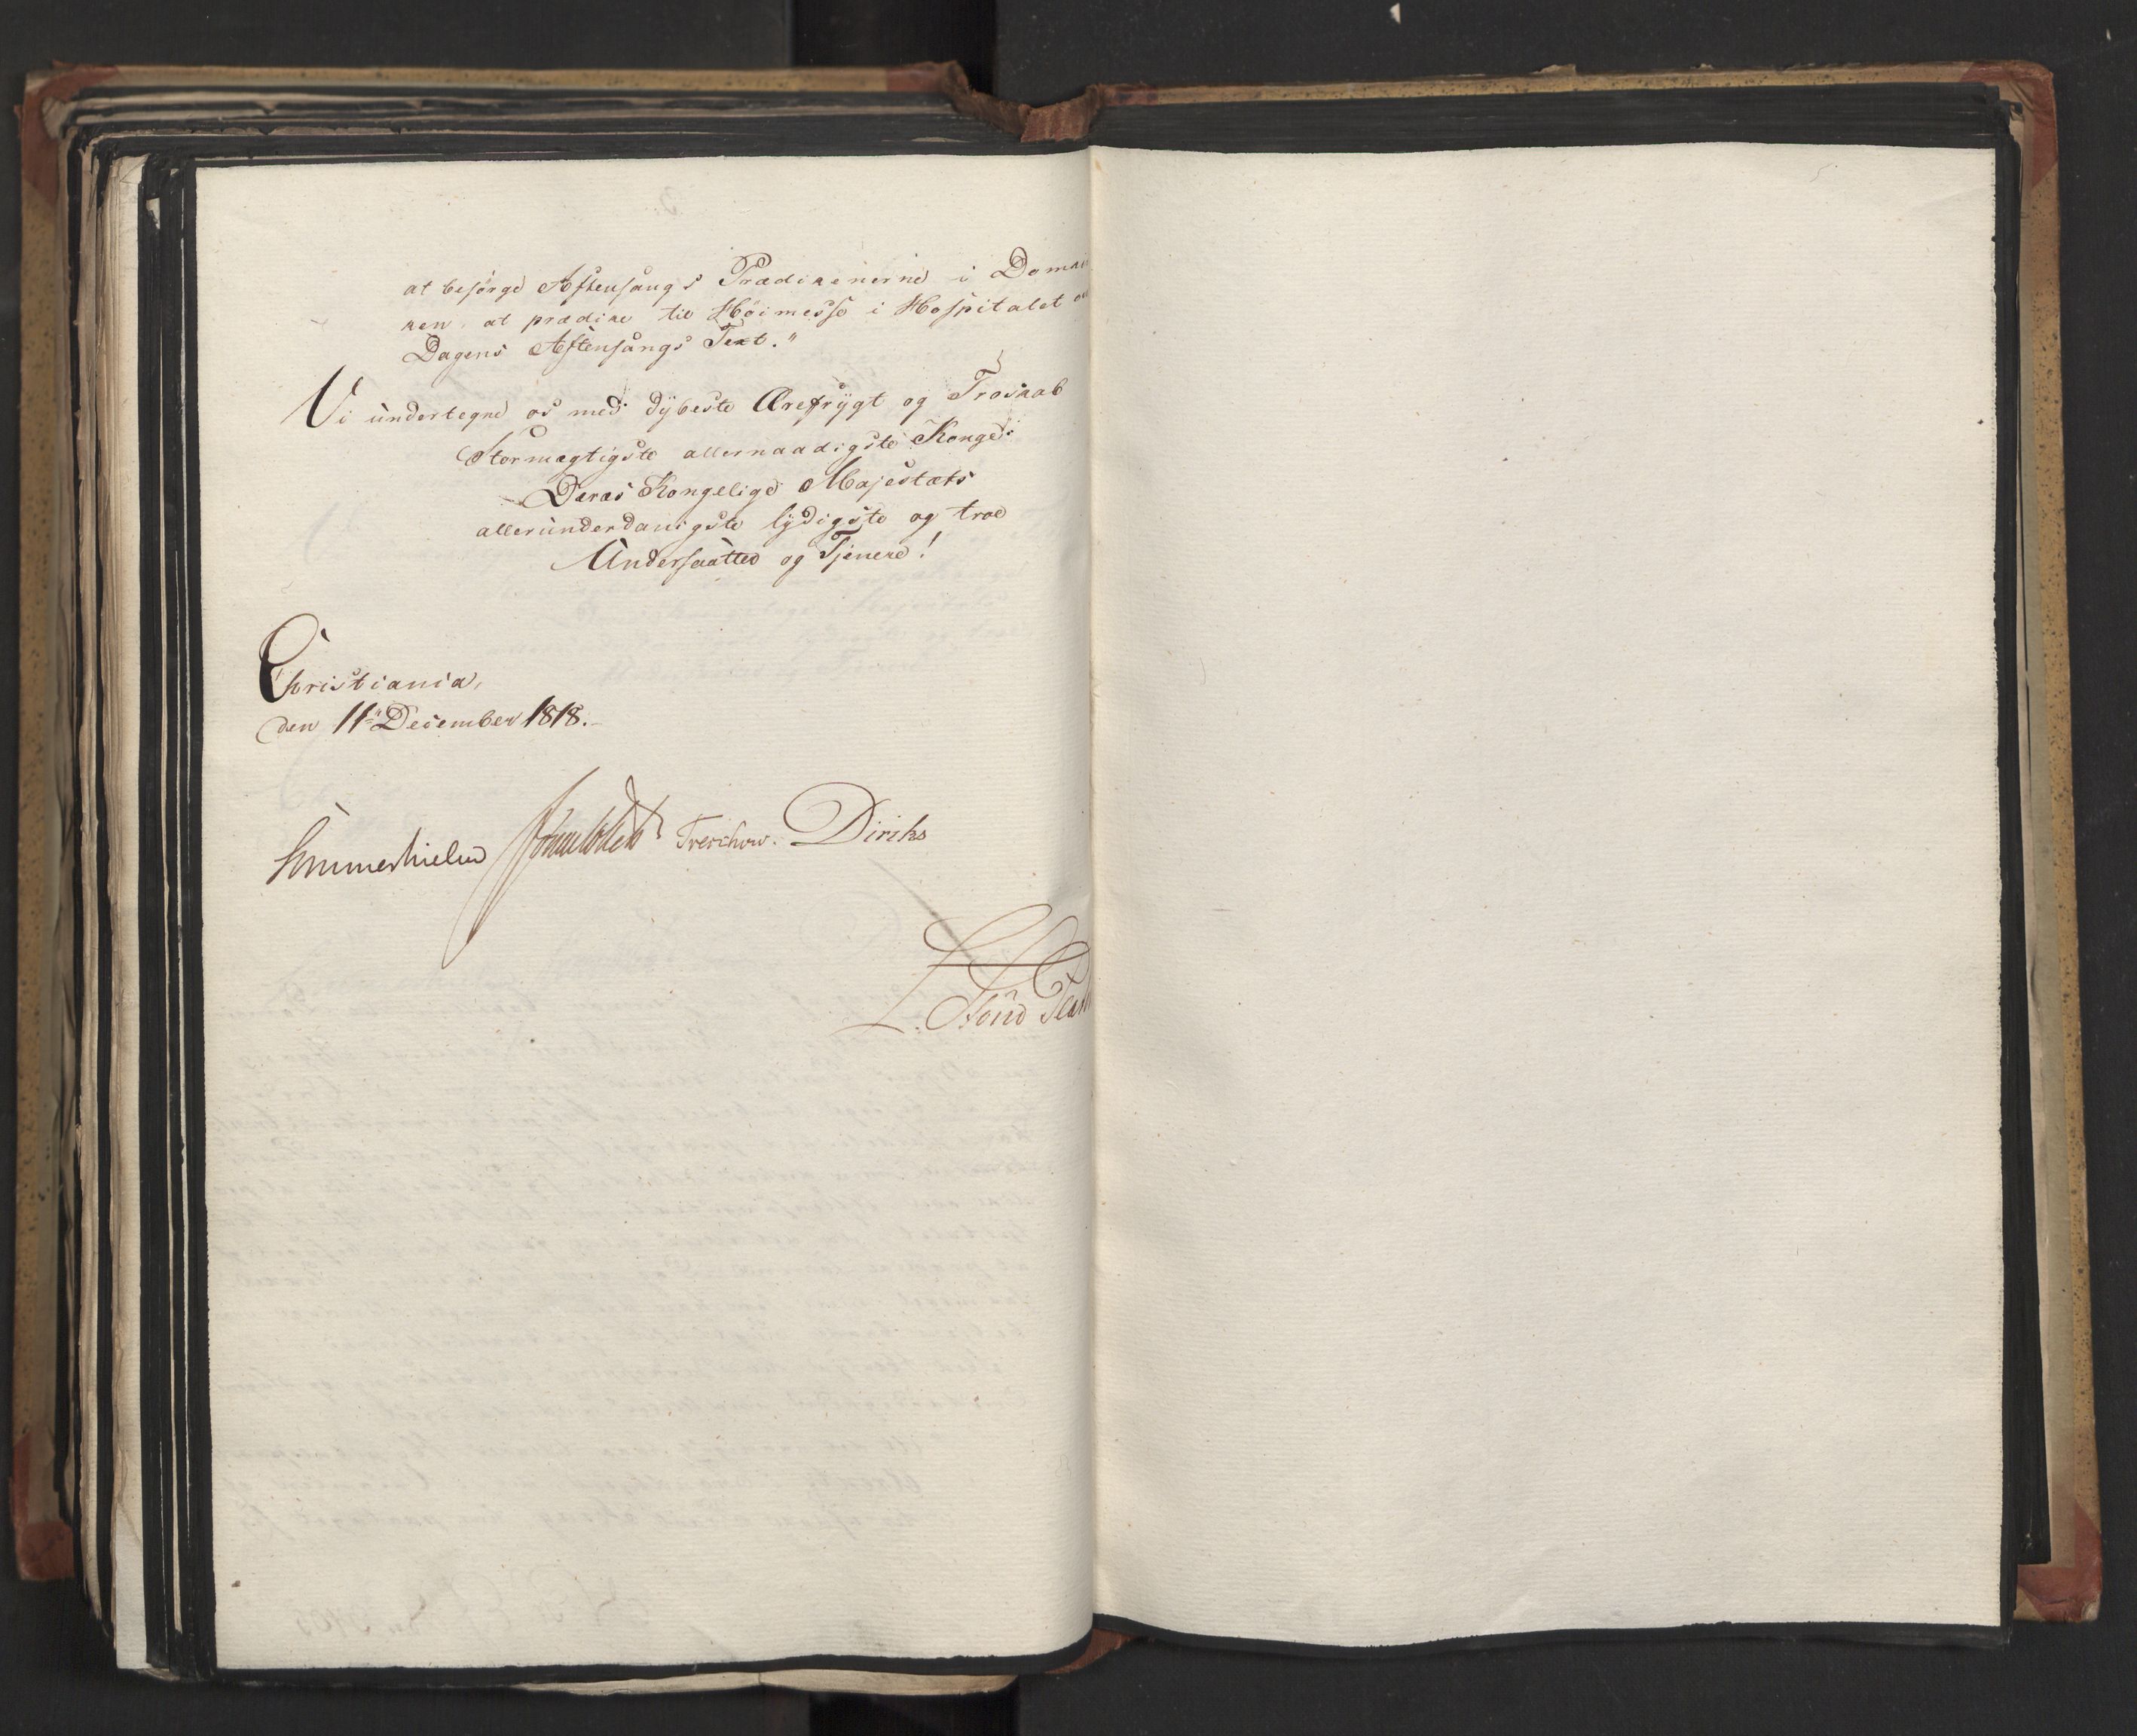 at besørge Aftensangs Prædikenerne i Domkir
ken, at prædike til Høimesse i Hospitalet
Dagens Aftensangs Text."
Vi undertegne os med dÿbeste Ærefrÿgt og Troskab
Stormægtigste allernaadigste Konge!
Deres Kongelige Majestæts
allerunderdanigste lÿdigste og troe
Undersaatter og Tjenere!
Christiania,
den 11te December 1818.
Sommerhielm Treschow. Diriks
L.